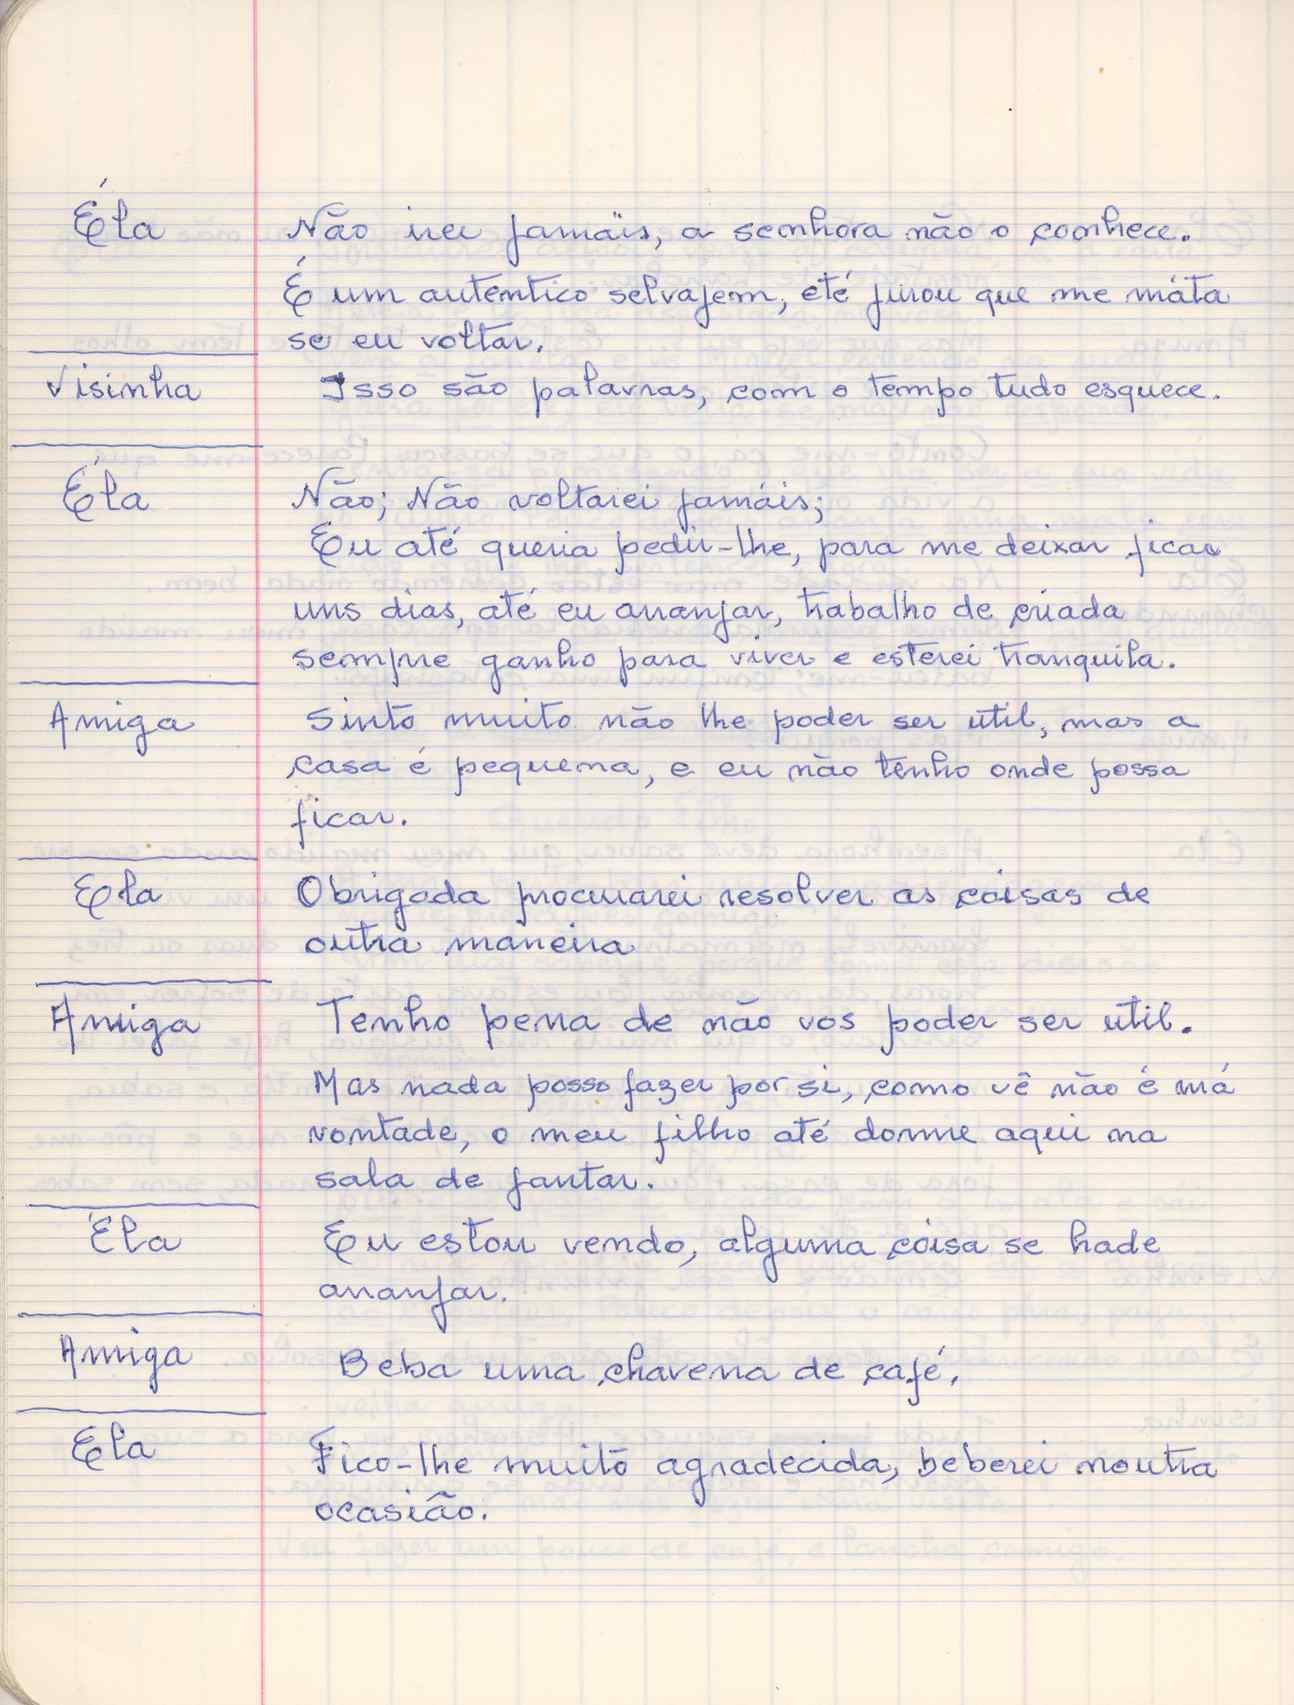 Éla Não irei jamais, a senhora não o conhece.
É um autentico selvajem, eté jurou que me máta
se eu voltar.
Visinha Isso são palavras, com o tempo tudo esquece.
Éla Não; Não voltarei jamáis;
Eu até queria pedir-lhe, para me deixar ficar
uns dias, até eu arranjar, trabalho de criada
sempre ganho para viver e esterei tranquila.
Amiga Sinto muito não lhe poder ser util, mas a
casa é pequena, e eu não tenho onde possa
ficar.
Ela Obrigada procurarei resolver as coisas de
outra maneira
Amiga Tenho pena de não vos poder ser util.
Mas nada posso fazer por si, como vê não é má
vontade, o meu filho até dorme aqui na
sala de jantar.
Éla Eu estou vendo, alguma coisa se hade
arranjar.
Amiga Beba uma chavena de café,
Ela Fico-lhe muito agradecida, beberei noutra
ocasião.